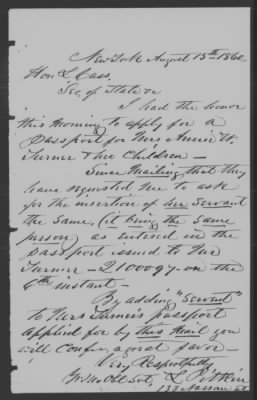 New York August 15th 1860
Hon L Cass,
Sec of State &c
I had the honor
this morning to apply for a
Passport for Mrs Annie W.
Turner & her Children —
Since mailing that they
have requested me to ask
for the insertion of her Servant
the same, (it being the same
person) as entered in the
passport issued to Mr
Turner — 21000 on the
6th instant —
By adding "Servant"
to Mrs Turner's passport
applied for by this mail you
will confer a great favor —
Very Respectfully
Yr Mo Obt Svt, L Pitkin
Nassau St